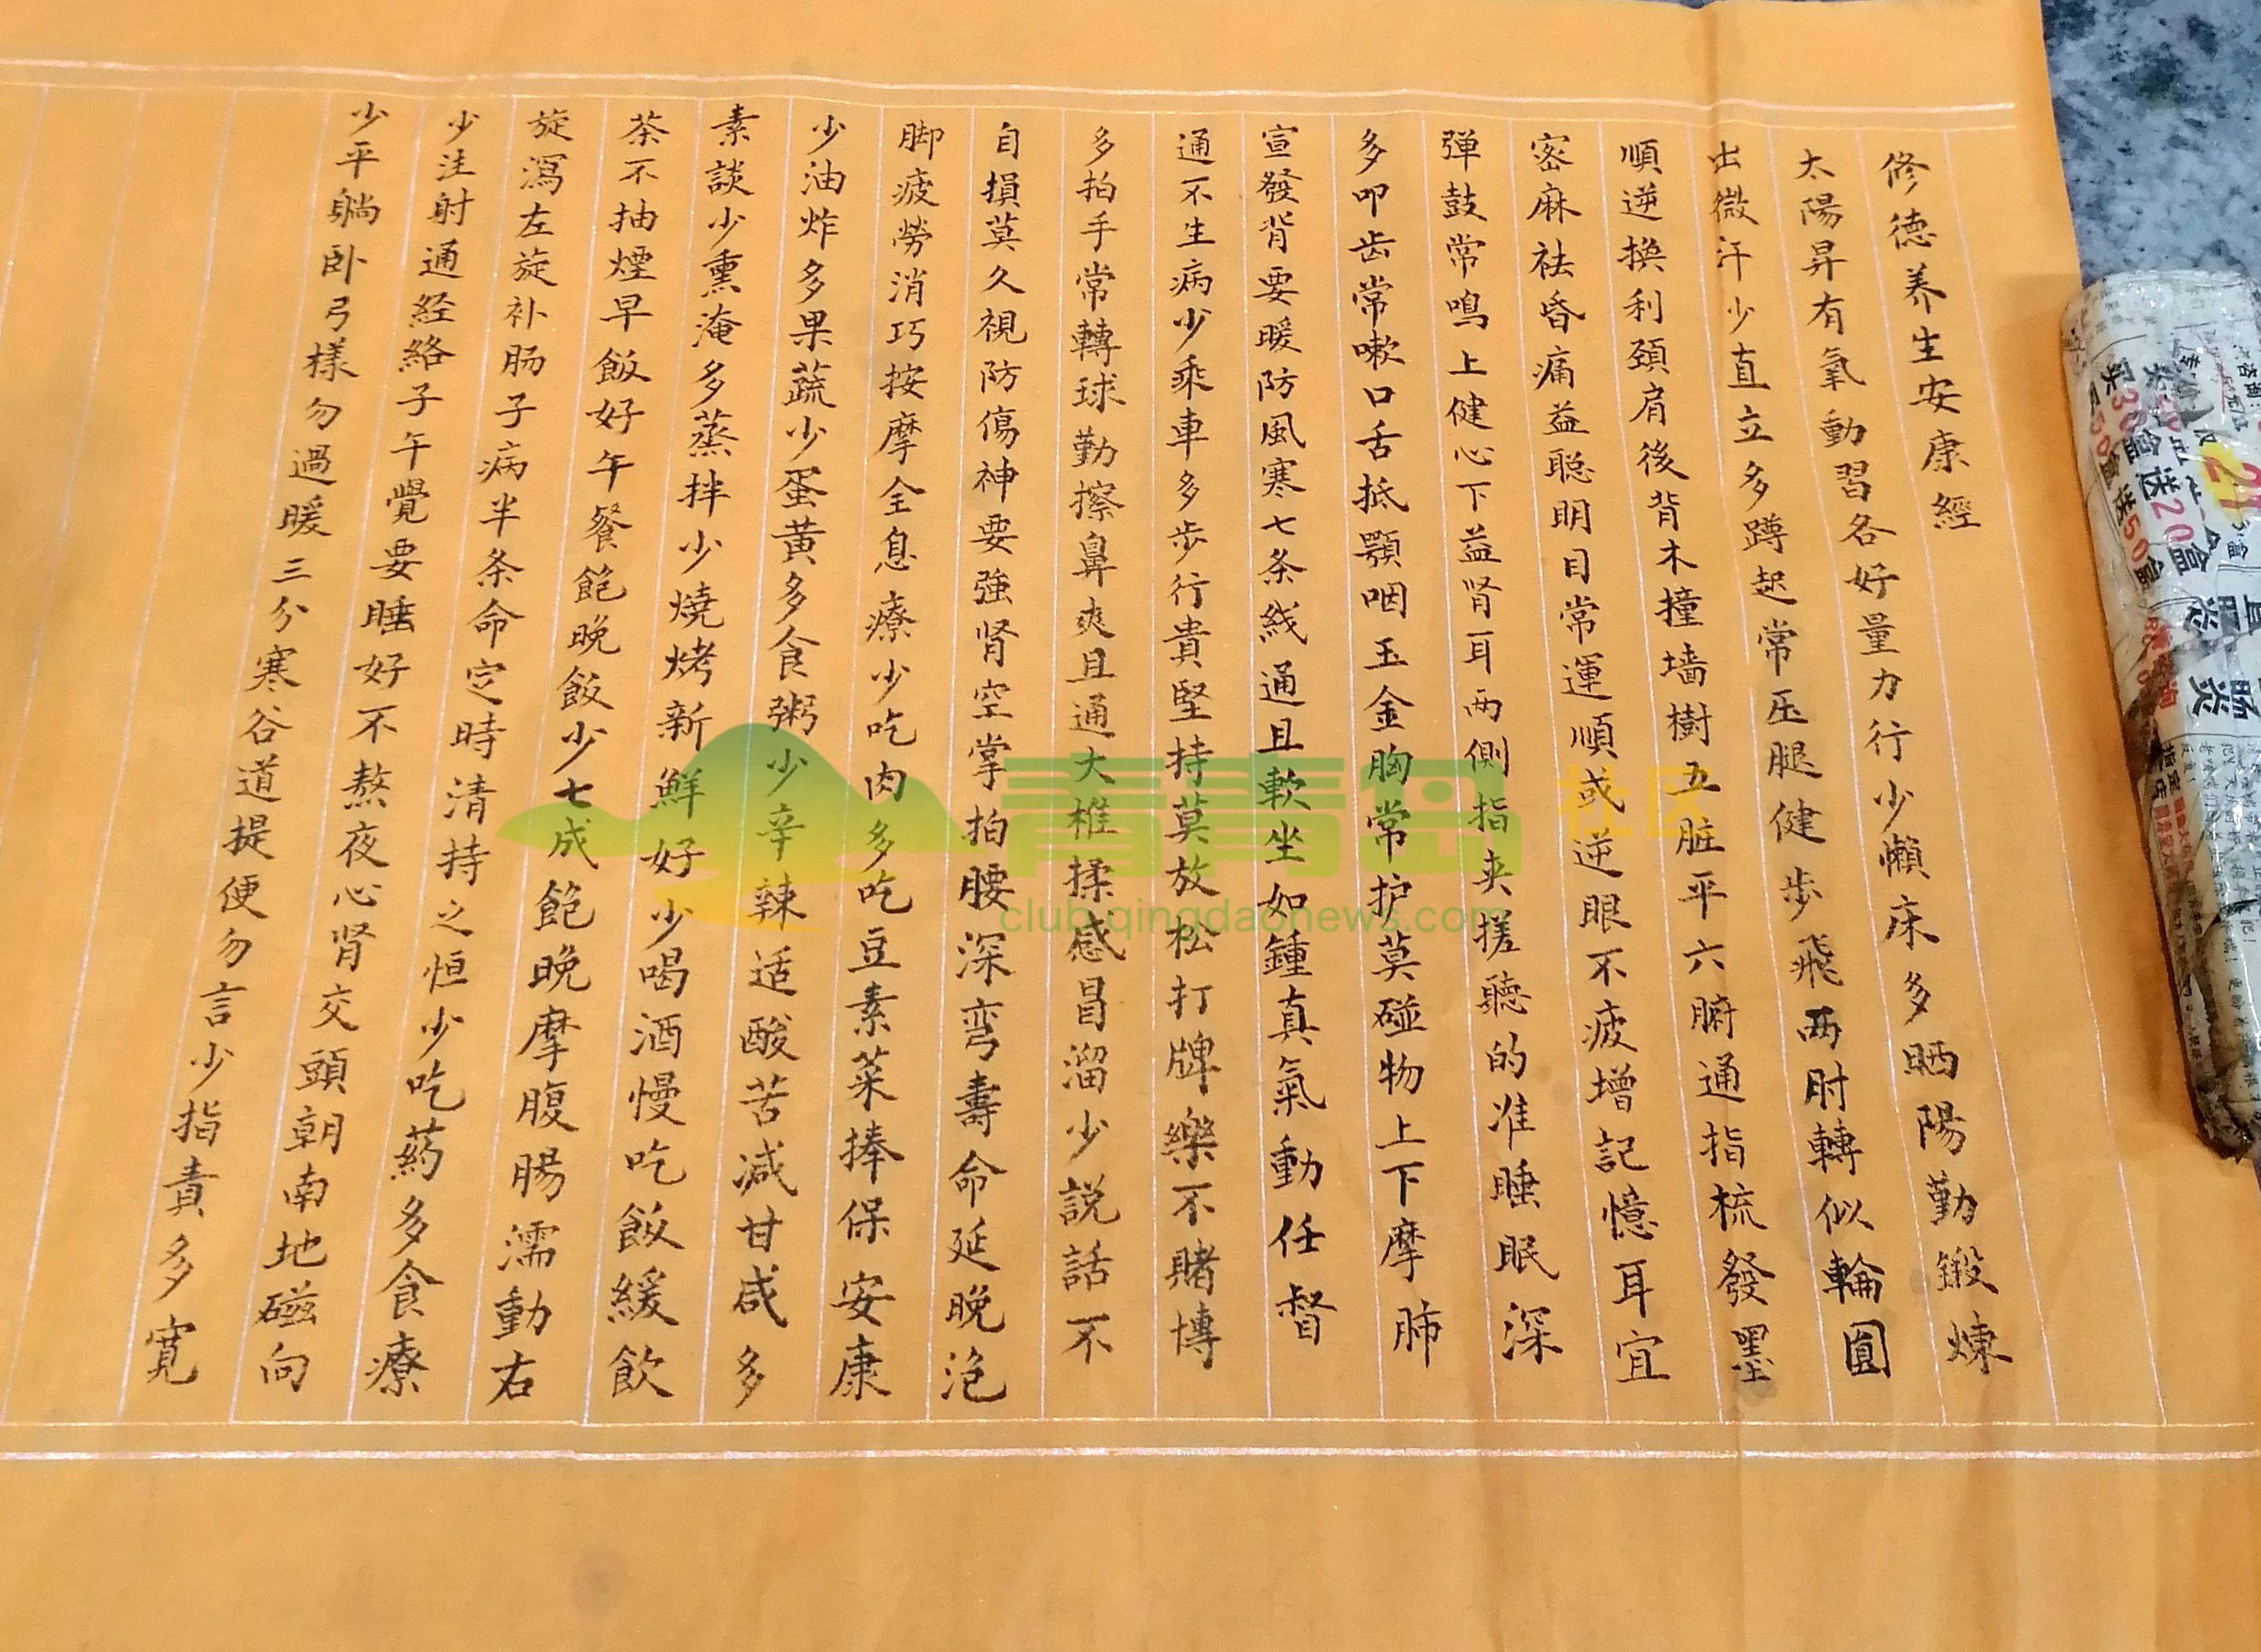 修德养生安康經
太陽昇有氧動習各好量力行少懶床多晒陽勤鍛煉
出微汗少直立多蹲起常压腿健步飛两肘轉似輪圓
順逆换利頸肩後背木撞墙樹五脏平六腑通指梳發墨
密麻祛昏痛益聪明目常運順或逆眼不疲增記憶耳宜
弹鼓常鳴上健心下益肾耳两侧指夹搓聽的准睡眠深
多叩齿常嗽口舌抵颚咽玉金胸常护莫碰物上下摩肺
宣發背要暖防風寒七条线通且軟坐如鍾真氣動任督
通不生病少乘車多步行貴堅持莫放松打牌樂不賭博
多拍手常轉球勤擦鼻爽且通大椎揉感冒溜少説話不
自損莫久視防傷神要強肾空掌拍腰深弯壽命延晚泡
脚疲勞消巧按摩全息療少吃肉多吃豆素菜捧保安康
少油炸多果蔬少蛋黄多食粥少辛辣适酸苦减甘咸多
素談少熏淹多蒸拌少燒烤新鮮好少喝酒慢吃飯緩飲
茶不抽煙早飯好午餐飽晚飯少七成飽晚摩腹肠濡動右
旋瀉左旋补肠子病半条命定時清持之恒少吃药多食療
少注射通経絡子午覺要睡好不熬夜心肾交頭朝南地磁向
少平躺卧弓樣勿過暖三分寒谷道提便勿言少指責多寬
青青岛 社区
club.qingdaonews.com